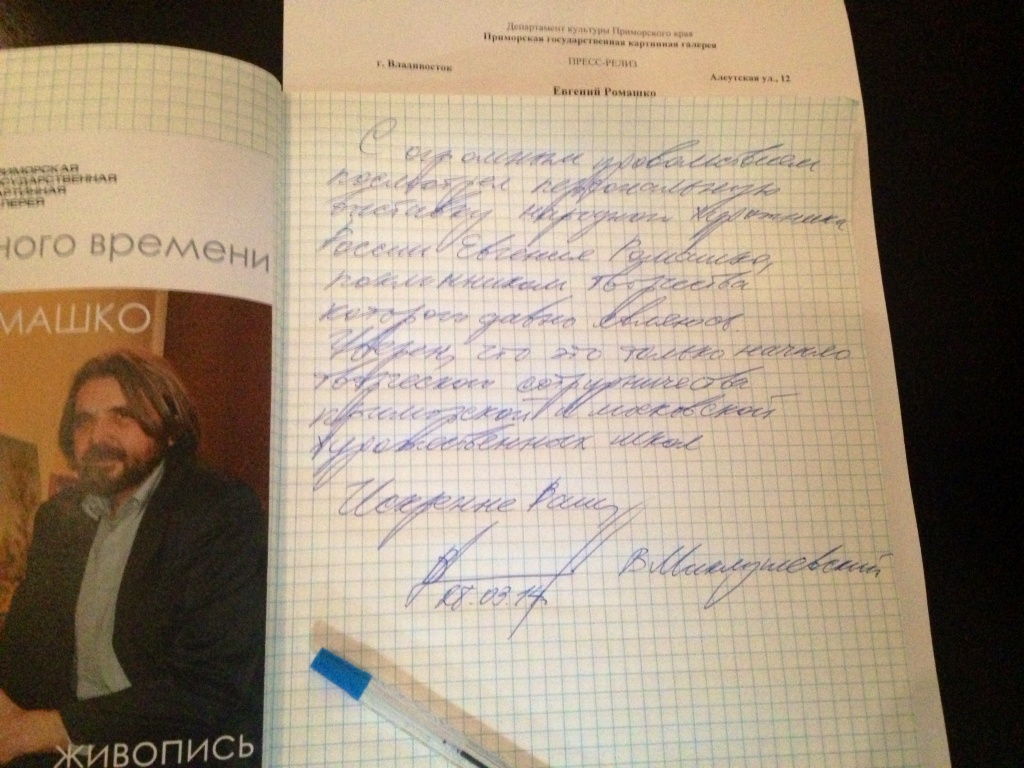 Департамент культуры Приморского края
Приморская государственная картинная галерея
ПРЕСС-РЕЛИЗ
г. Владивосток
Алеутская ул., 12
Евгений Ромашко
РИМОРСКАЯ
ОСУДАРСТВЕННАЯ
АРТИННАЯ
АЛЕРЕЯ
ного времени
МАШКО
ЖИВОПИСЬ
С огромным удовольствием
посмотрел персональную
выставку народного художника
России Евгения Ромашко,
поклонником творчества
которого давно являюсь.
Уверен, что это только начало
творческого сотрудничества
приморской и московской
художественных школ
Искренне Ваш,
В.Миклушевский
28.03.14